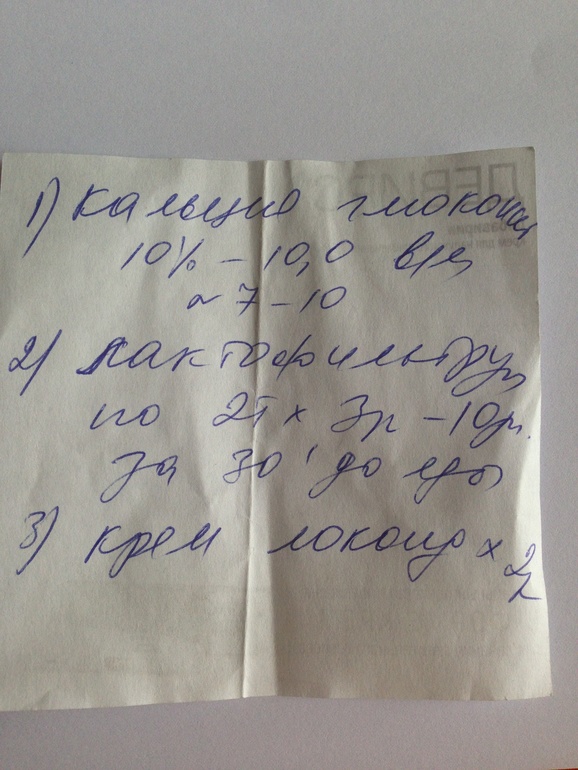 1) Кальция глюконат
10% – 10,0 в/м
~ 7–10
2) Лактофильтрум
по 2т х 3р – 10дн.
за 30' до еды
3) крем локоид х 2р